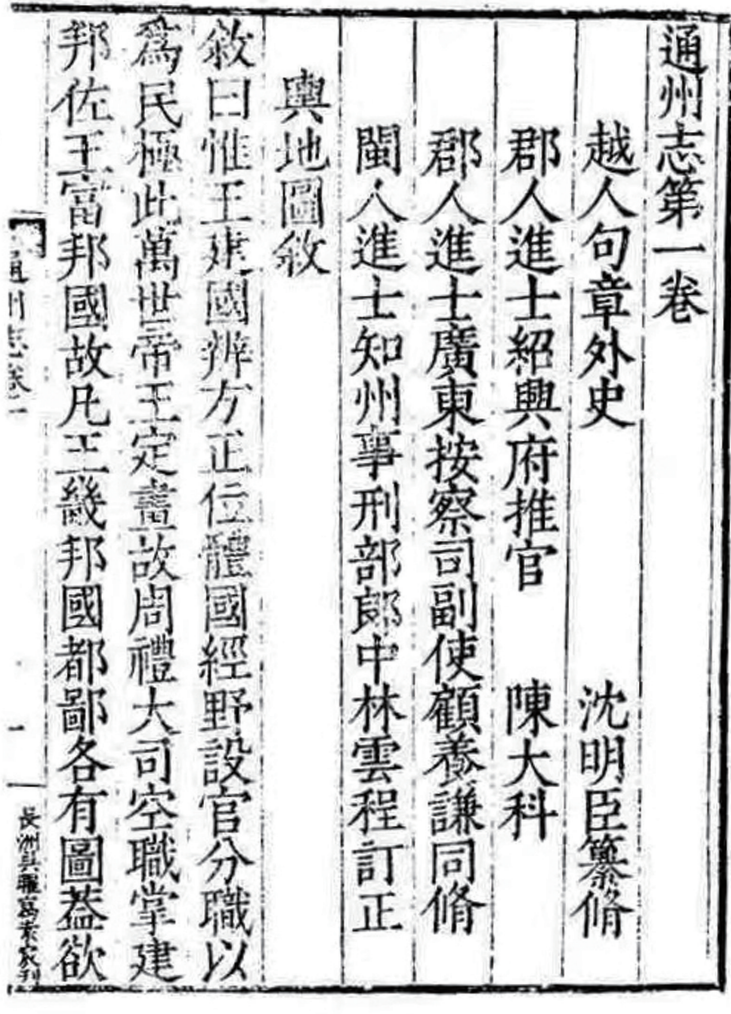 通州志第一卷
越人句章外史 沈明臣纂脩
郡人進士紹興府推官 陳大科
郡人進士廣東按察司副使顧養謙同脩
閩人進士知州事刑部郎中林雲程訂正
輿地圖敘
敘曰惟王建國辨方正位體國經野設官分職以
為民極此萬世帝王定畫故周禮大司空職掌建
邦佐王富邦國故凡王畿邦國都鄙各有圖蓋欲
通州志卷一
一
長洲吳曜寫袁家刊